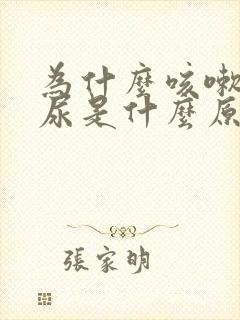 為什麼咳嗽
尿是什麼原
張家明